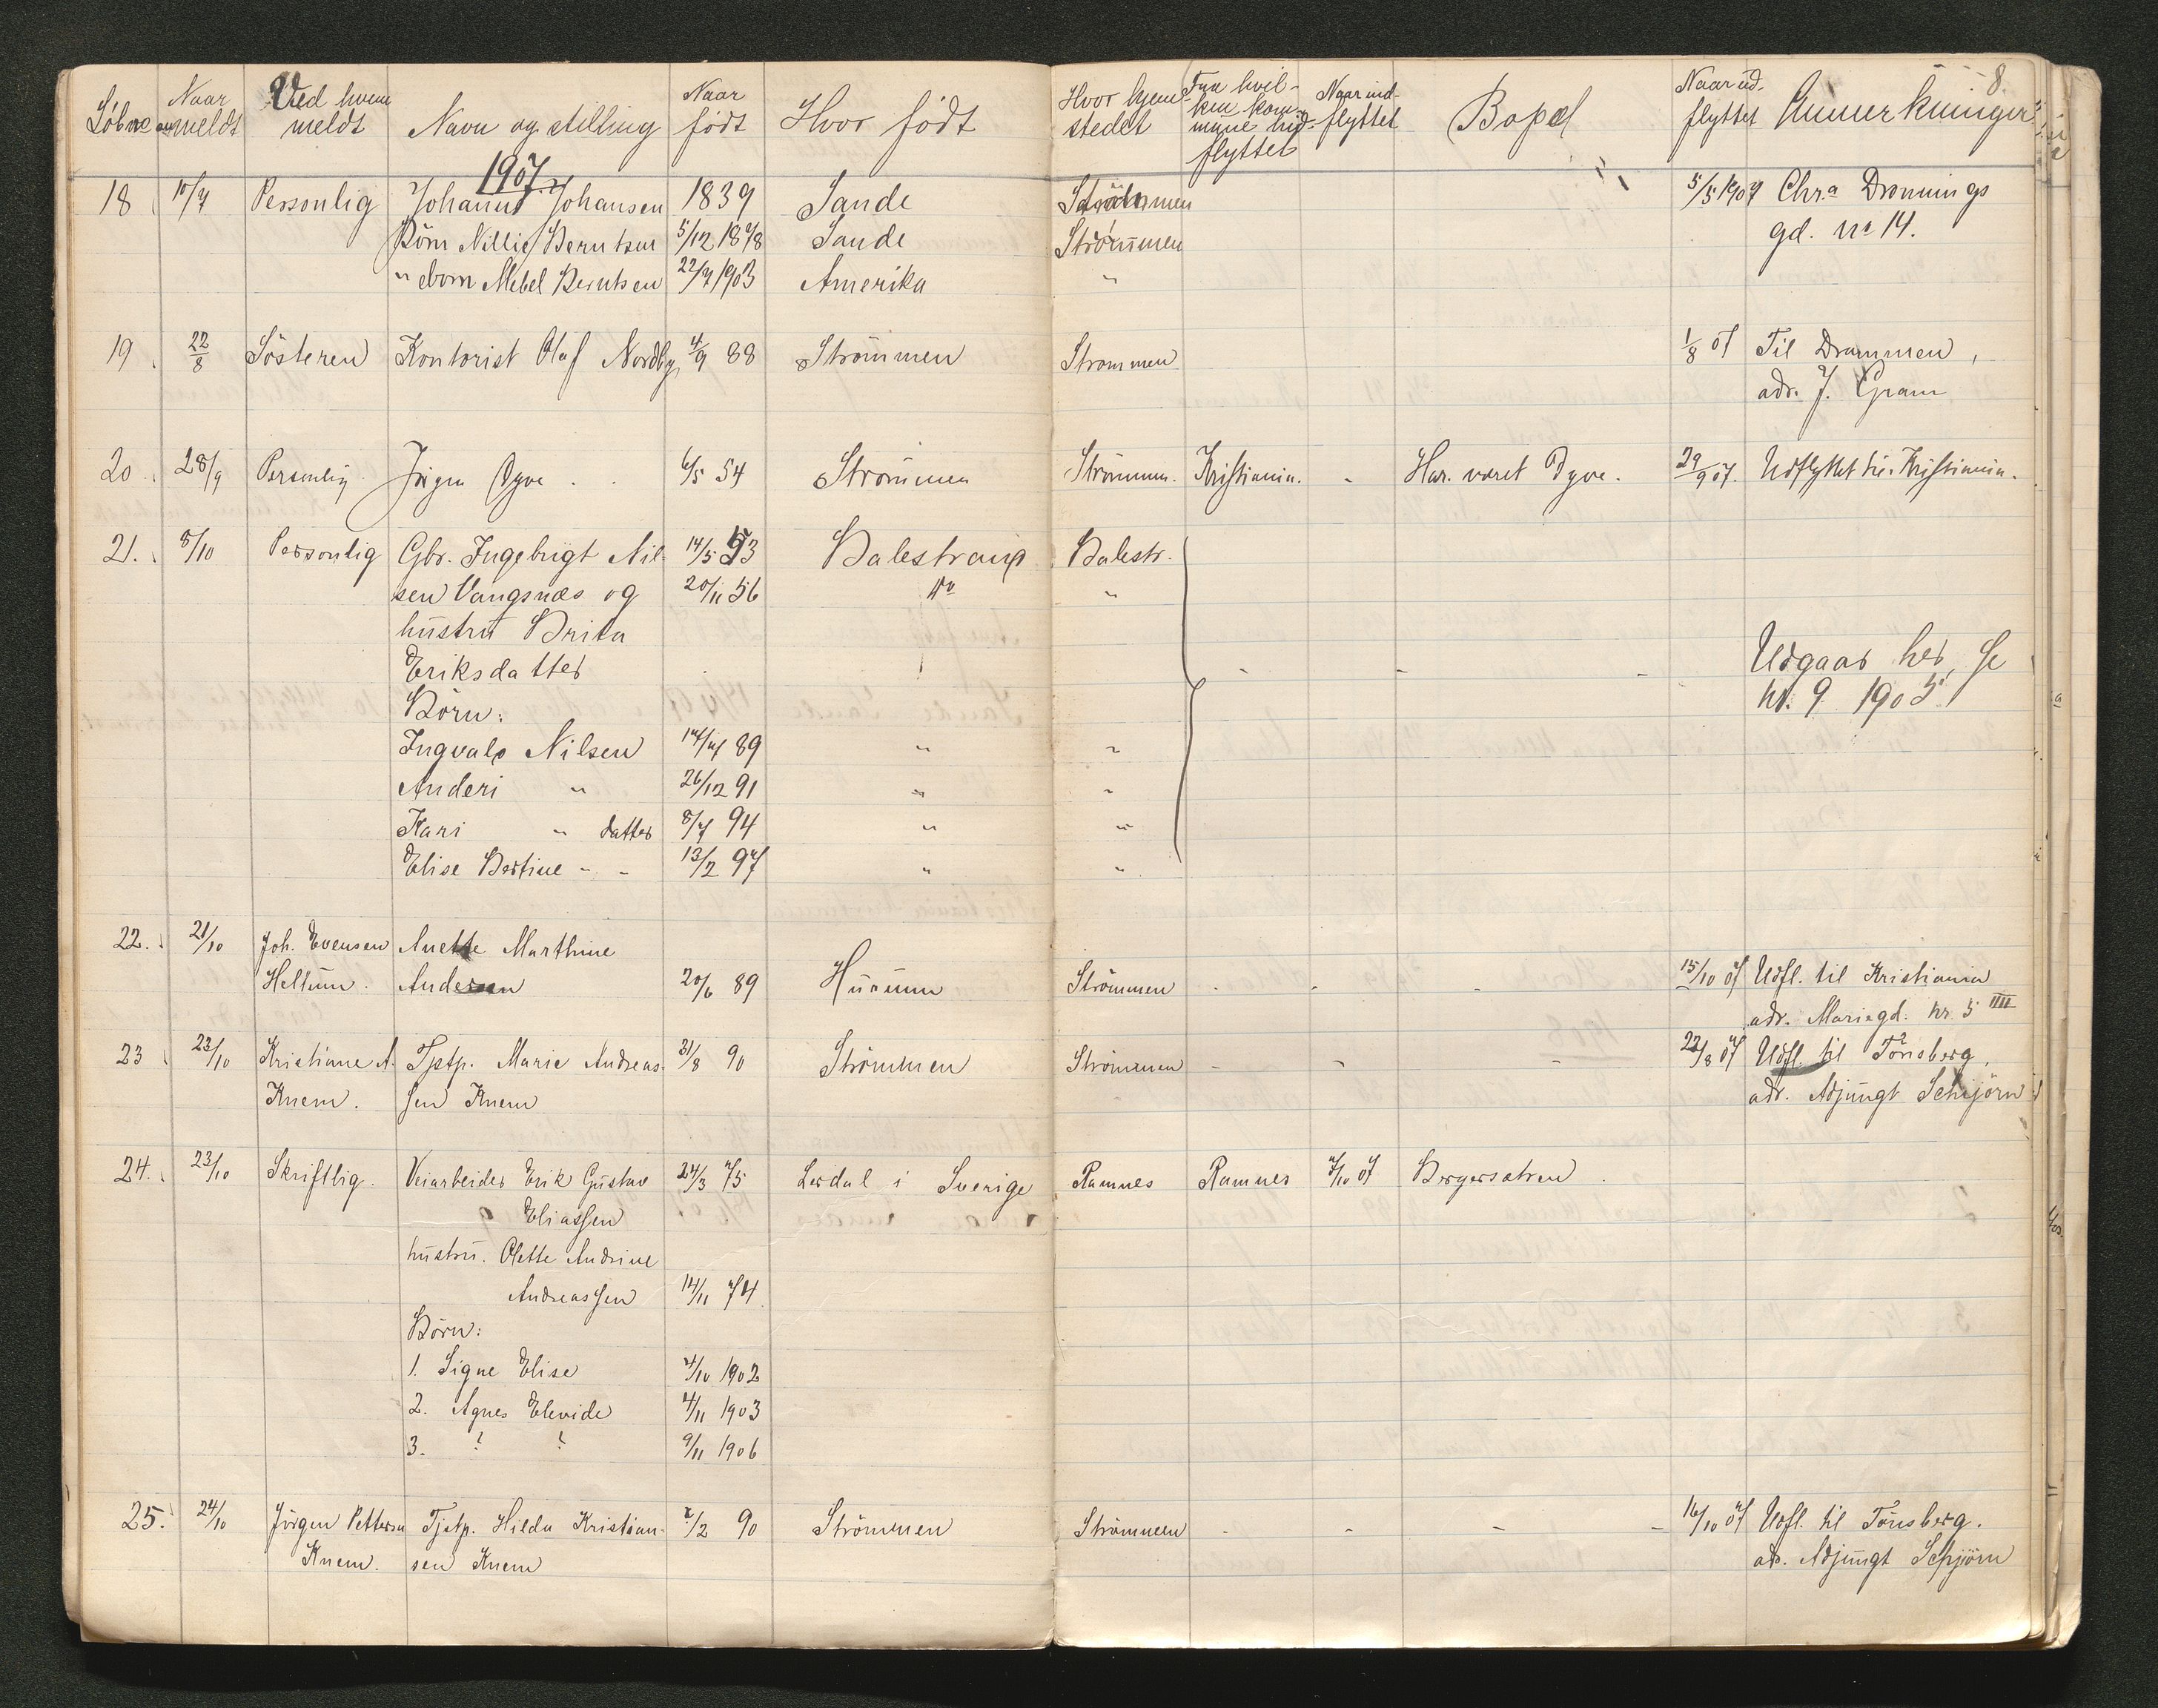 8.
Löbne Naar anmeldt Ved hvem meldt Navn og stilling Naar født Hvor født Hvor hjemstedet Fra hvilken kommune indflyttet Naar indflyttet Bopel Naar udflyttet Anmerkninger
1907
18 10/7 Personlig Johanne Johansen 1839 Sande Strömmen 5/5 1907 Chr.a Dronnings
Börn Nillie Berntsen 5/12 1878 Sande Strömmen gd. no 14.
" dbarn Mebel Berntsen 22/7 1903 Amerika "
19 22/8 Sösteren Kontorist Olaf Nordby 4/9 88 Strömmen Strömmen 1/8 07 Til Drammen,
adr. J. Gram
20 28/9 Personlig Jörgen Dyve 6/5 54 Strömmen Strömmen. Kristiania. - Har været Dyve. 29/9 07. Udflyttet til Kristiania.
21. 8/10 Personlig Gbr. Ingebrigt Nil- 14/5 53 Balestrand Balestr.
sen Vangsnæs og 20/11 56 do "
hustru Brita
Eriksdatter - - - Udgaar her, se
Börn: nr. 9 1905
Ingvald Nilsen 14/4 89 " "
Anderi " 26/12 91 " "
Kari " datter 8/7 94 " "
Elise Bertine " " 13/2 97 " "
22. 21/10 Joh. Evensen Anette Marthine
Hellum. Andersen 20/6 89 Hurum Strömmen - - - 15/10 07 Udfl. til Kristiania
adr. Mariegd. nr. 5 IIII
23 23/10 Kristiane A. Tjstp. Marie Andreas- 31/8 90 Strömmen Strömmen - - - 22/8 07 Udfl. til Tönsberg,
Knem. sen Knem adr. Adjungt Schjörn
24. 23/10 Skriftlig. Veiarbeider Erik Gustav 24/3 75 Lerdal i Sverige Ramnes Ramnes 7/10 07 Bergersatren.
Eliassen
hustru. Olette Andrine
Andreassen 14/11 74
Börn:
1. Signe Elise 4/10 1902
2. Agnes Elevide 4/11 1903
3. ? ? 9/11 1906
25. 24/10 Jörgen Pettersen Tjstp. Hilda Kristian- 2/2 90 Strömmen Strömmen - - - - 16/10 07 Udfl. til Tönsberg.
Knem. sen Knem adr. Adjungt Schjörn